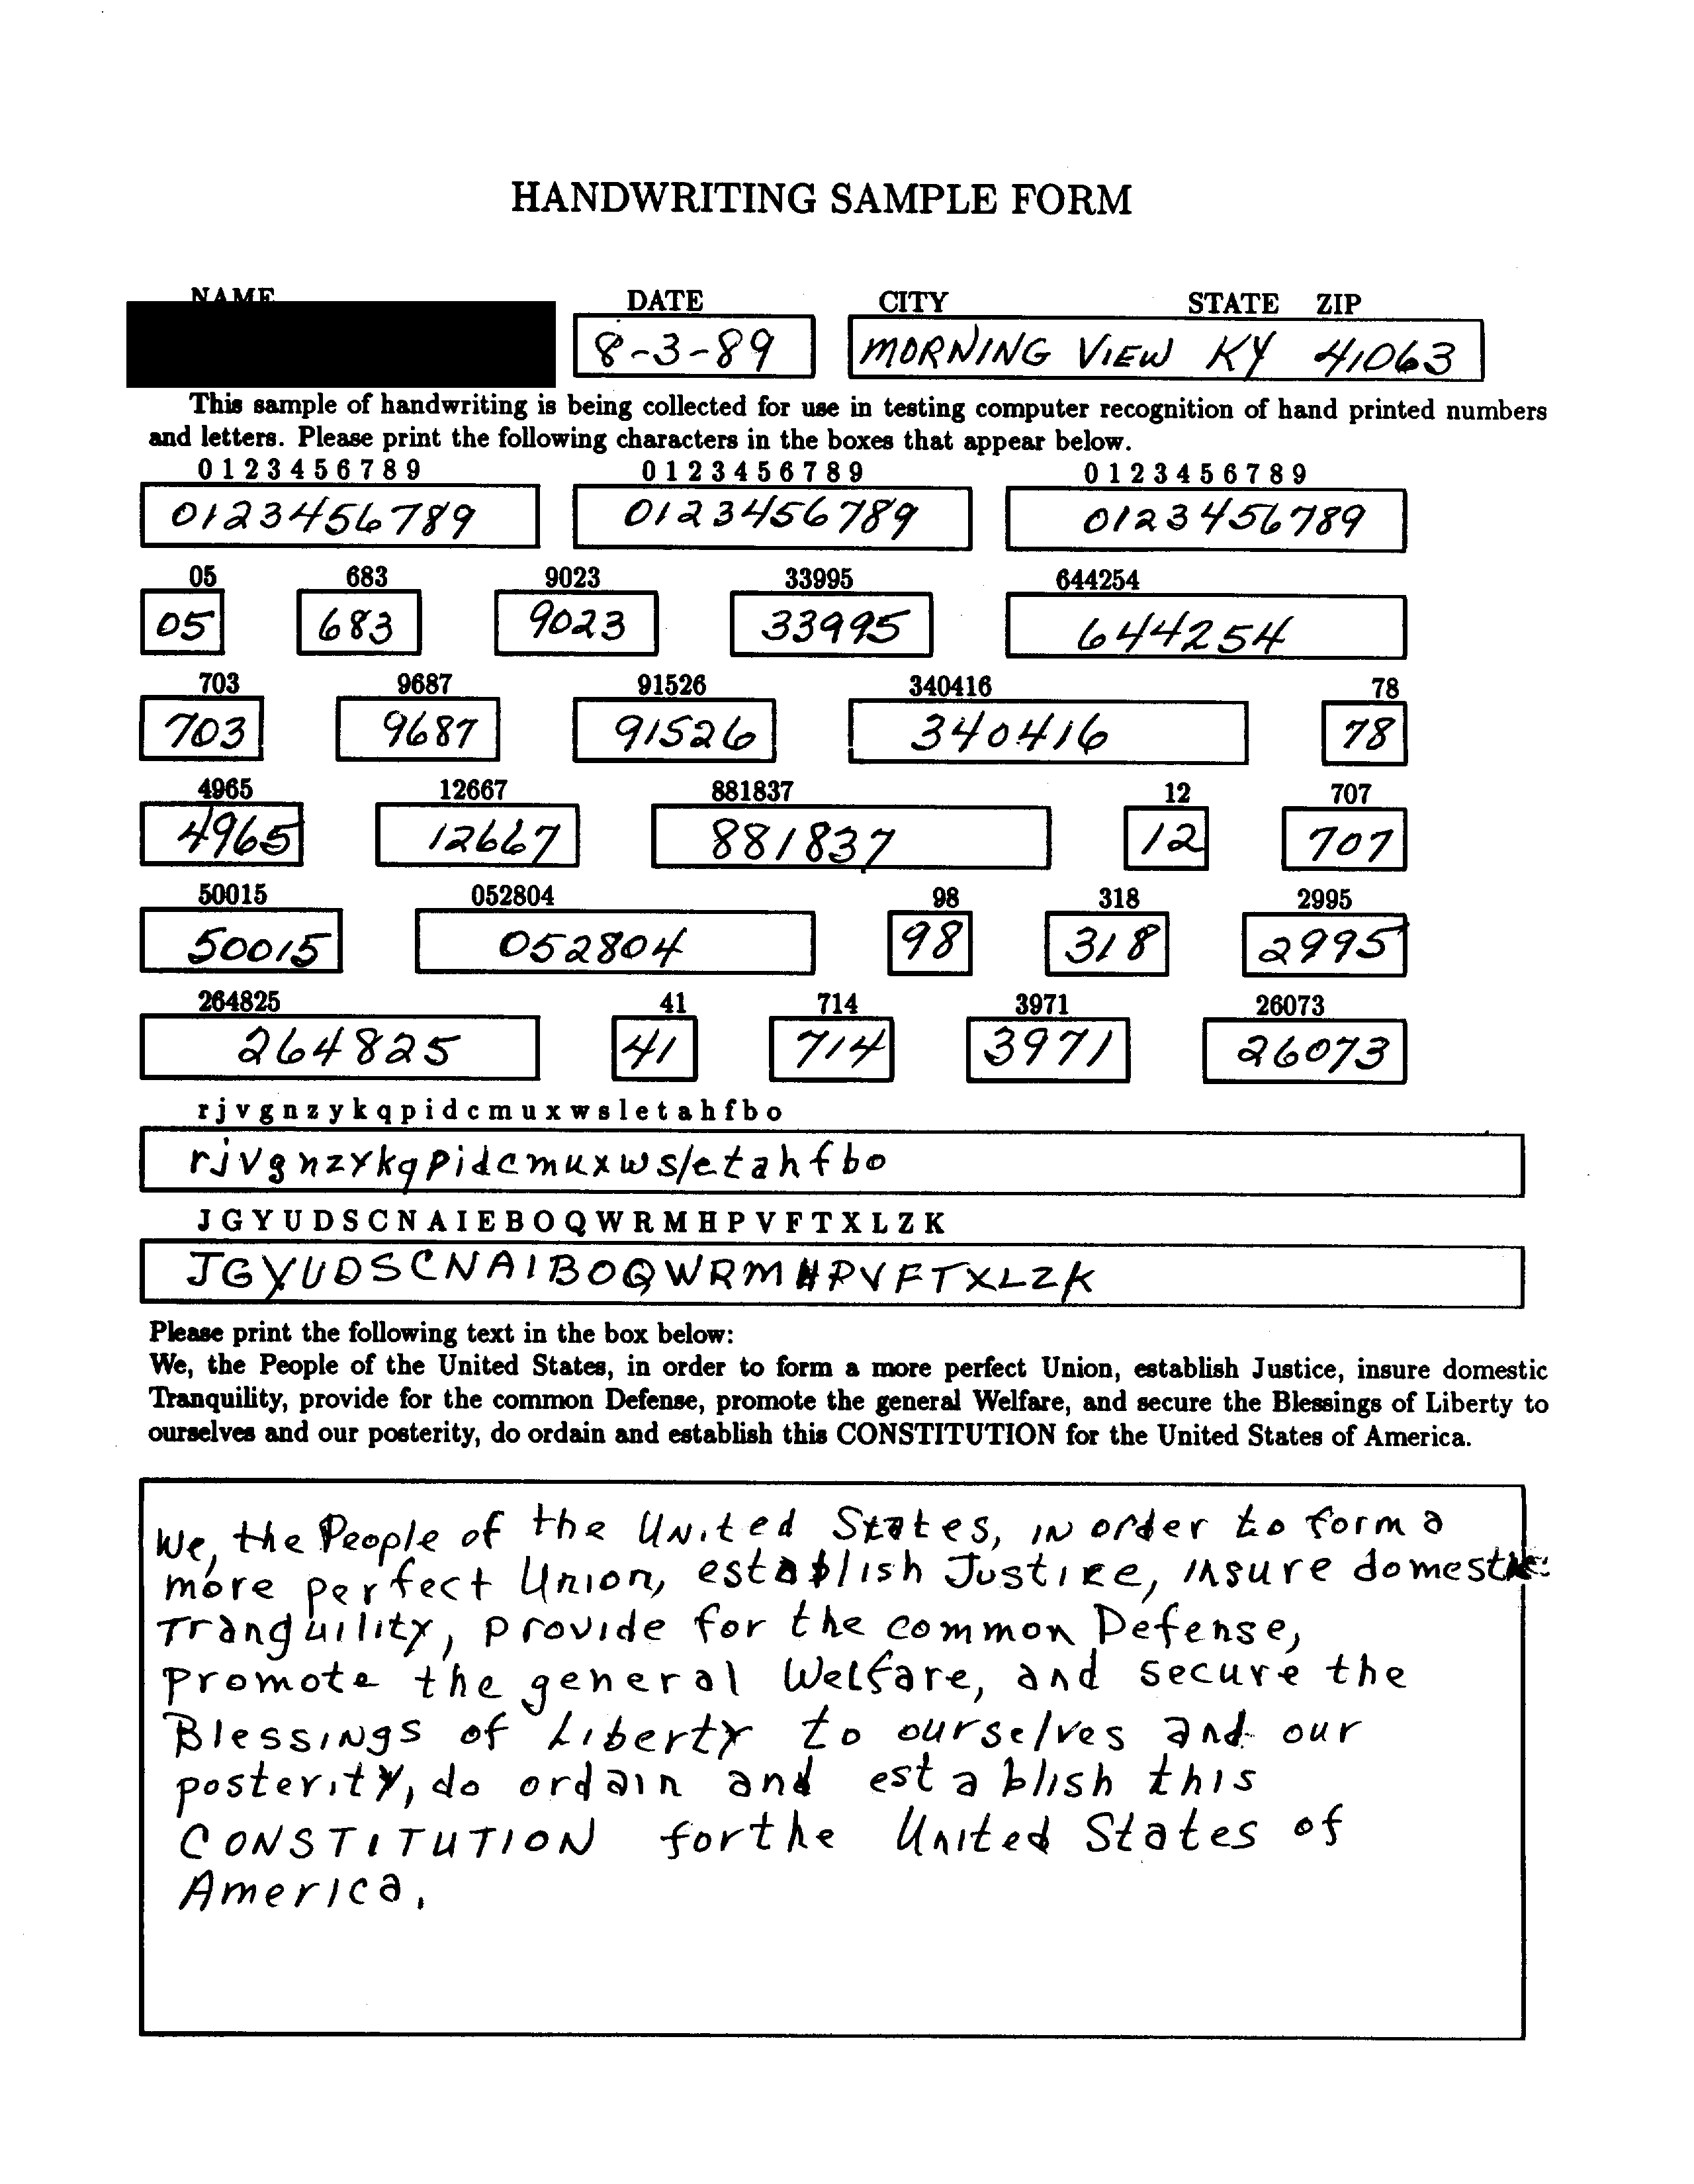 HANDWRITING SAMPLE FORM
NAME DATE CITY STATE ZIP
8-3-89 MORNING VIEW KY 41063
This sample of handwriting is being collected for use in testing computer recognition of hand printed numbers
and letters. Please print the following characters in the boxes that appear below.
0 1 2 3 4 5 6 7 8 9 0 1 2 3 4 5 6 7 8 9 0 1 2 3 4 5 6 7 8 9
0123456789 0123456789 0123456789
05 683 9023 33995 644254
05 683 9023 33995 644254
703 9687 91526 340416 78
703 9687 91526 340416 78
4965 12667 881837 12 707
4965 12667 881837 12 707
50015 052804 98 318 2995
50015 052804 98 318 2995
264825 41 714 3971 26073
264825 41 714 3971 26073
r j v g n z y k q p i d c m u x w s l e t a h f b o
rjvgnzykqpidcmuxwsletahfbo
J G Y U D S C N A I E B O Q W R M H P V F T X L Z K
JGYUDSCNAIBOQWRMHPVFTXLZK
Please print the following text in the box below:
We, the People of the United States, in order to form a more perfect Union, establish Justice, insure domestic
Tranquility, provide for the common Defense, promote the general Welfare, and secure the Blessings of Liberty to
ourselves and our posterity, do ordain and establish this CONSTITUTION for the United States of America.
We, the People of the United States, in order to form a
more perfect Union, establish Justice, insure domestic
Tranquility, provide for the common Defense,
promote the general Welfare, and secure the
Blessings of Liberty to ourselves and our
posterity, do ordain and establish this
CONSTITUTION forthe United States of
America.